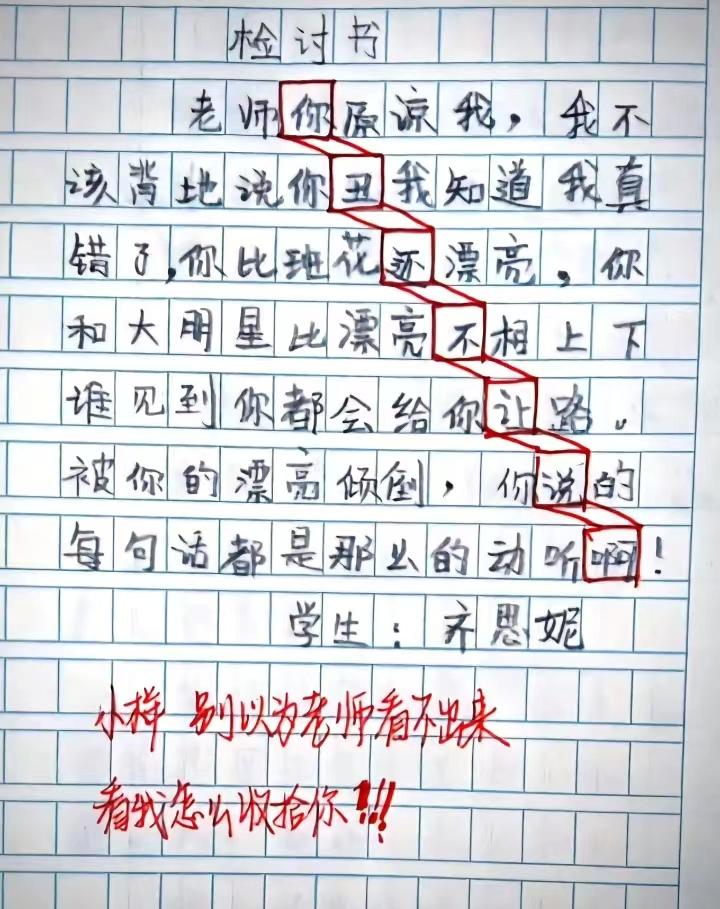 检讨书
老师你原谅我，我不
该背地说你丑我知道我真
错了，你比班花还漂亮，你
和大明星比漂亮不相上下
谁见到你都会给你让路。
被你的漂亮倾倒，你说的
每句话都是那么的动听啊！
学生：齐思妮
小样 别以为老师看不出来
看我怎么收拾你！！！